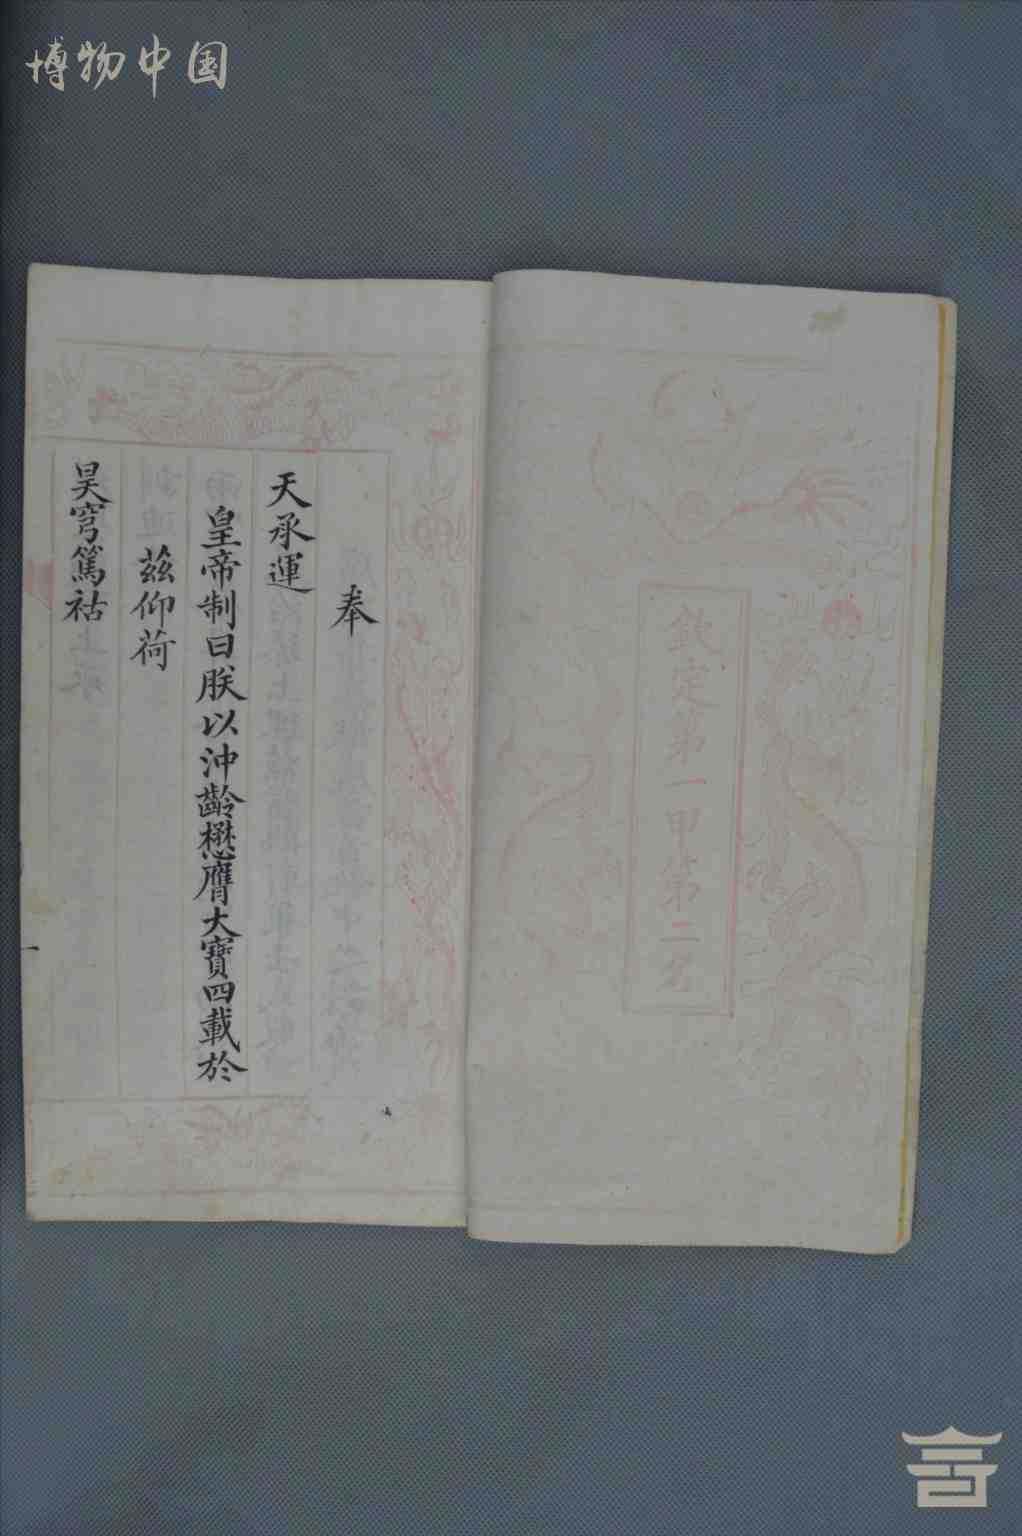 博物中国
欽定第一甲第二名
奉
天承運
皇帝制曰朕以沖齡懋膺大寶四載於
茲仰荷
昊穹篤祜